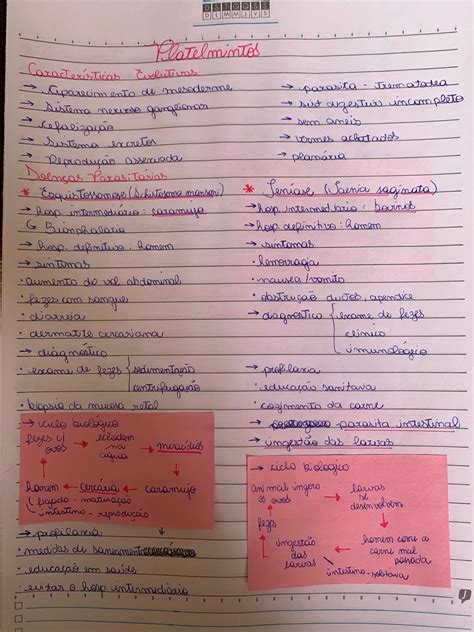 Platelmintos
Características Evolutivas
→ Aparecimento de mesoderme
→ Sistema nervoso ganglionar
→ Cefalização
→ Sistema excretor
→ Reprodução assexuada
→ parasita - trematodea
→ sist digestivo incompleto
→ sem aneis
→ vermes achatados
→ planária
Doenças Parasitárias
* Esquistossomose (Schistosoma mansoni)
→ hosp. intermediário: caramujo
G Biomphalaria
→ hosp. definitivo: homem
→ sintomas
• aumento do vol. abdominal
• fezes com sangue
• diarreia
• dermatite cercariana
→ diagnóstico
• exame de fezes { sedimentação
centrifugação
• biopsia da mucosa retal
→ ciclo biológico
fezes c/ ovos → eclodem na água → miracídios
homem ← cercária ← caramujo
fígado - maturação
intestino - reprodução
→ profilaxia
• medidas de saneamento
• educação em saúde
• evitar o hosp. intermediário
* Teníase (Taenia saginata)
→ hosp. intermediário: bovinos
→ hosp. definitivo: homem
→ sintomas
• hemorragia
• nausea/vomito
• obstrução ductos, apendice
→ diagnostico { exame de fezes
clinico
imunológico
→ profilaxia
• educação sanitaria
• cozimento da carne
→ parasita intestinal
→ ingestão das larvas
→ ciclo biologico
animal ingere os ovos → larvas se desenvolvem
homem come a carne mal passada
intestino - solitária
ingestão das larvas
fezes